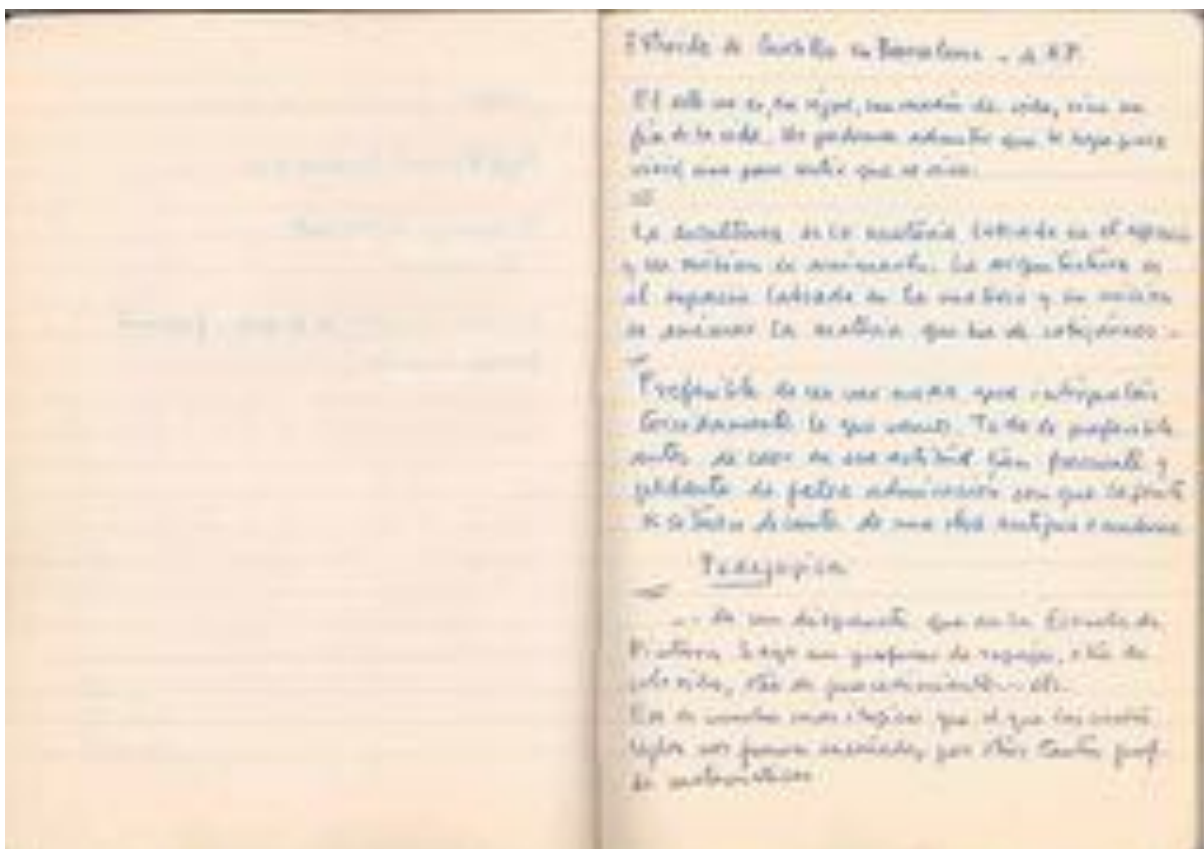 de Castilla en Barcelona - A.P.
El arte no es, en rigor, un medio de vida, sino un
fin de la vida. No podemos admitir que se haga para
vivir, sino para sentir que se vive.
La escultura es la materia labrada en el espacio
y su misión es animarlo. La arquitectura es
el espacio labrado en la materia y su misión
es animar la materia que ha de cobijarnos -
Preferible es no ver nada que interpretar
torcidamente lo que vemos. Todo es preferible
antes de caer en esa actitud tan frecuente y
pedante de falsa admiración con que la gente
se coloca delante de una obra antigua o moderna
Pedagogía
... Es un disparate que en la Escuela de
Pintura haya un profesor de ropaje, otro de
colorido, otro de procedimiento... etc.
Eso es mucho más ilógico que el que las cuatro
reglas nos fueran enseñadas, por otros tantos prof.
de matemáticas